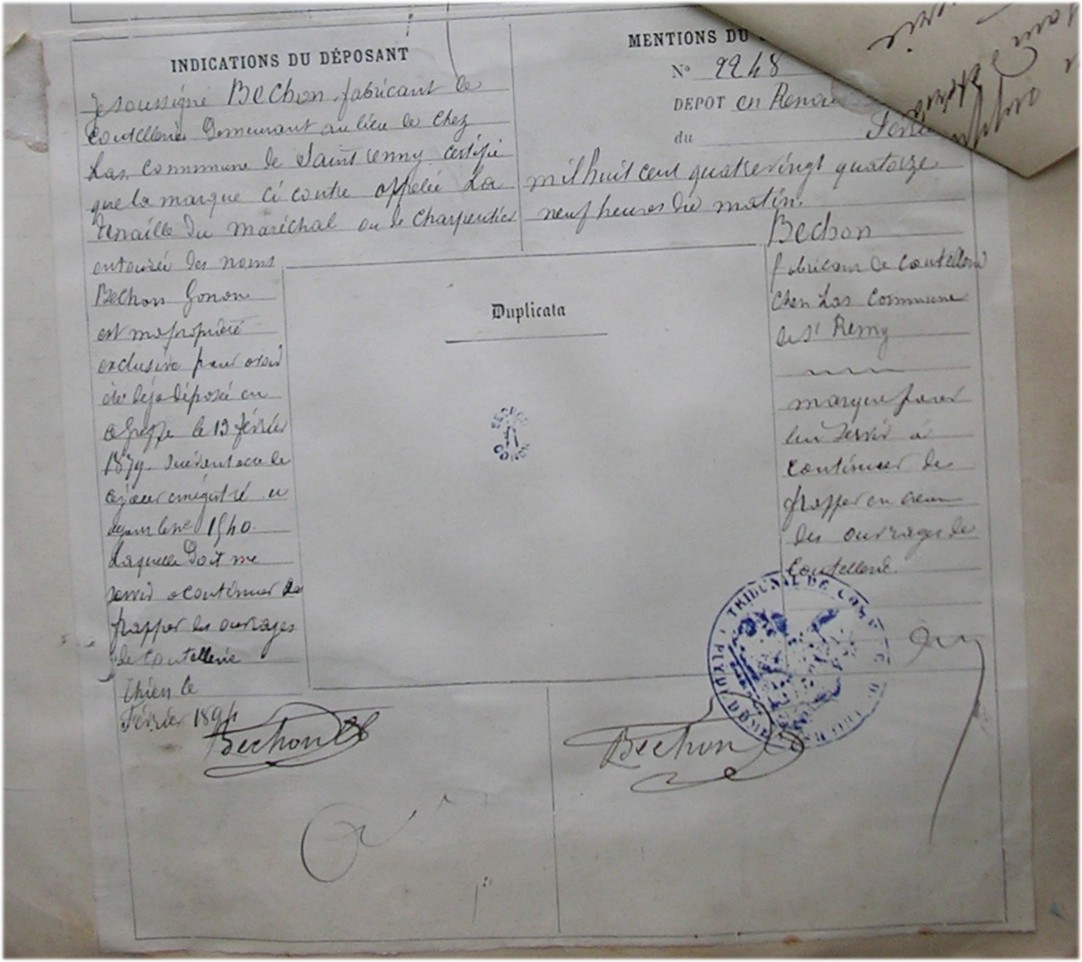 INDICATIONS DU DÉPOSANT
Je soussigné Bechon fabricant de
Coutellerie Demeurant au lieu de Chez
Las Commune de Saint remy certifie
que la marque ci contre appelée La
Tenaille du maréchal ou de Charpentier
entourée des noms
Bechon Gonon
est ma propriété
exclusive pour avoir
été déjà déposé au
Greffe le 13 février
1879.
1540.
Laquelle doit me
servir a continuer de
frapper les ouvrages
de coutellerie
Thiers le
Février 1894
Bechon
MENTIONS DU
N° 2248
DEPOT en
du
mil huit cent quatrevingt quatorze
neuf heures du matin.
Bechon
fabricant de Coutellerie
Chez Las Commune
de St Remy
marque pour
lui servir à
continuer de
frapper en creux
des ouvrages de
Coutellerie
Bechon
Duplicata
BECHON
GONON
TRIBUNAL DE COMMERCE
PUY DE DOME